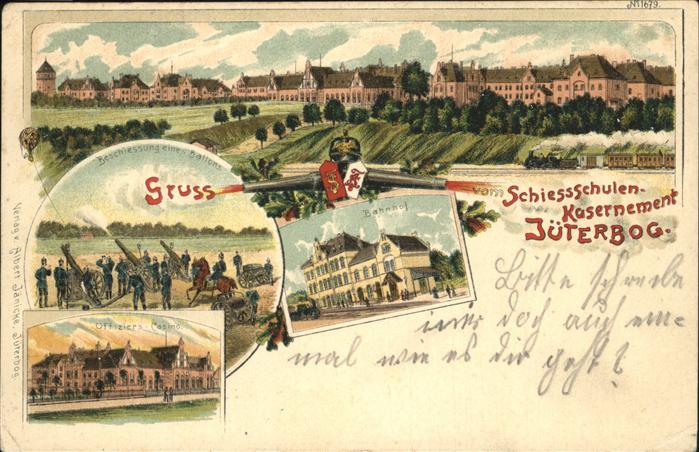 No 1679.
Beschiessung eines Ballons
Gruss
vom Schiessschulen-
Kasernement
JÜTERBOG.
Bahnhof
Offiziers-Casino.
Verlag v. Albert Jänicke, Jüterbog
Bitte schreibe
doch auch ein-
mal wie es dir geht?